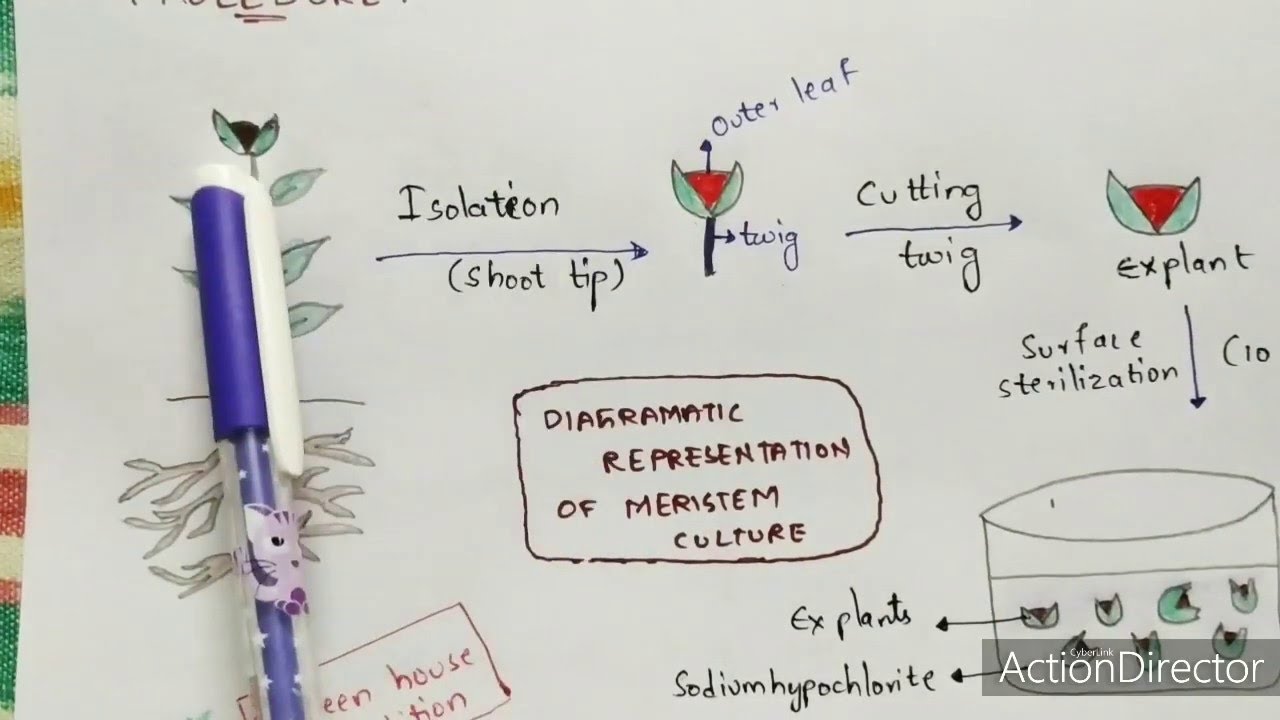 PROCEDURE:
Outer leaf
Isolation
(Shoot tip)
twig
Cutting
twig
Explant
Surface
sterilization
(10
DIAGRAMATIC
REPRESENTATION
OF MERISTEM
CULTURE
Explants
Sodiumhypochlorite
een house
dition
CyberLink
ActionDirector